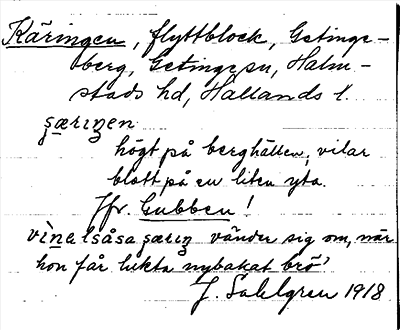 Käringen, flyttblock, Getinge-
berg, Getinge sn, Halm-
stads hd, Hallands l.
särıŋen
högt på berghällen, vilar
blott på en liten yta.
Jfr. Gubben!
vänder sig om, när
hon får lukta nybakat brö'
J. Sahlgren 1918